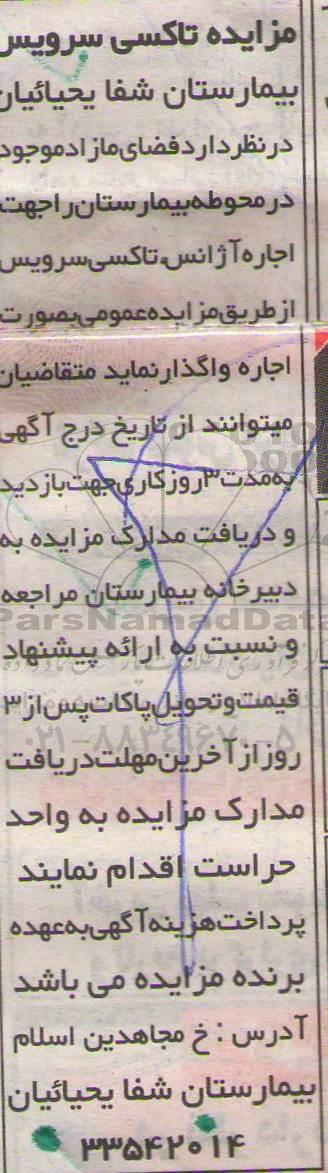 مزایده تاکسی سرویس
بیمارستان شفا یحیائیان
در نظر دارد فضای مازاد موجود
در محوطه بیمارستان را جهت
اجاره آژانس، تاکسی سرویس
از طریق مزایده عمومی بصورت
اجاره واگذار نماید متقاضیان
میتوانند از تاریخ درج آگهی
به مدت ۳ روز کاری جهت بازدید
و دریافت مدارک مزایده به
دبیرخانه بیمارستان مراجعه
ParsNamadData
و نسبت به ارائه پیشنهاد
قیمت و تحویل پاکات پس از ۳
۰۲۱-۸۸۳۴۹۶۷۰-۵
روز از آخرین مهلت دریافت
مدارک مزایده به واحد
حراست اقدام نمایند
پرداخت هزینه آگهی به عهده
برنده مزایده می باشد
آدرس : خ مجاهدین اسلام
بیمارستان شفا یحیائیان
۳۳۵۴۲۰۱۴